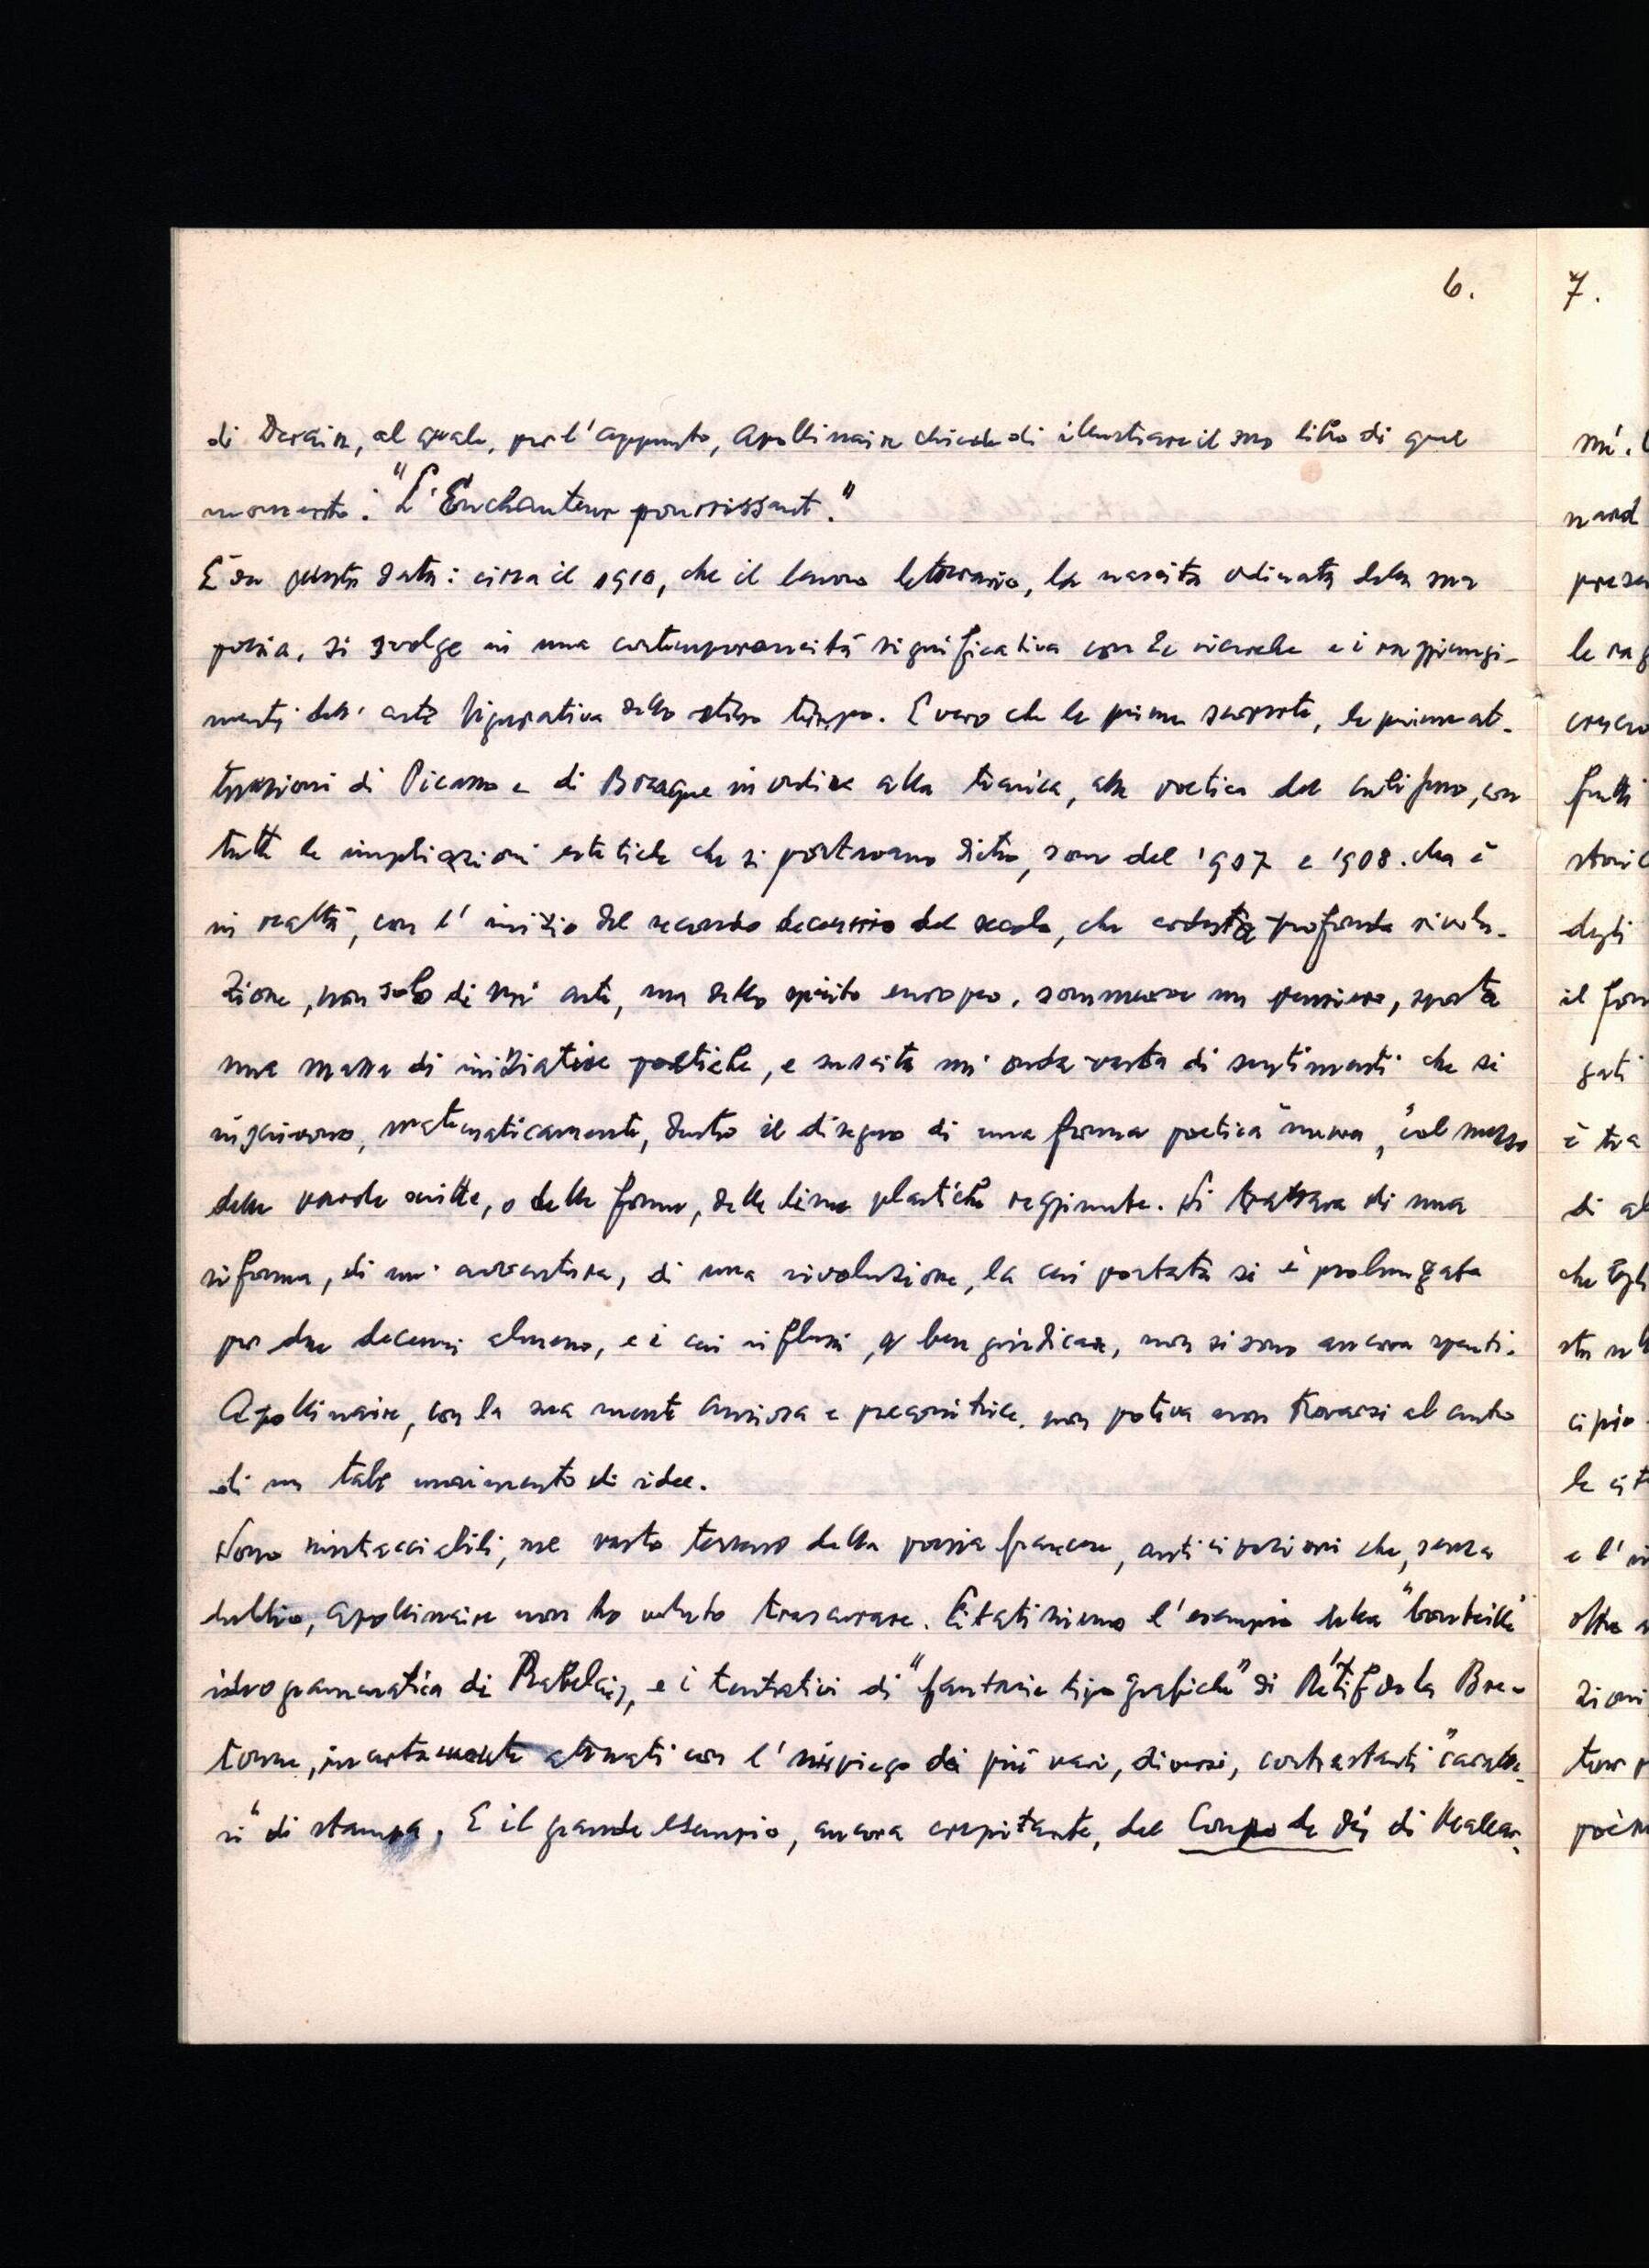 6.
di Derain, al quale, per l'appunto, Apollinaire chiede di illustrare il suo libro di quel
momento: "L'Enchanteur pourrissant."
È in questa data: circa il 1910, che il lavoro letterario, la nascita ordinata della sua
poesia, si svolge in una contemporaneità significativa con le ricerche e i raggiungi-
menti dell'arte figurativa dello stesso tempo. È vero che le prime scoperte, le prime at-
tuazioni di Picasso e di Braque in ordine alla tecnica, alla poetica del cubismo, con
tutte le implicazioni estetiche che si portavano dietro, sono del 1907 e 1908. Ma è
in realtà, con l'inizio del secondo decennio del secolo, che codesta profonda rivolu-
zione, non solo di arte, ma dello spirito europeo, sommuove un pensiero, sposta
una massa di iniziative poetiche, e suscita un'onda vasta di sentimenti che si
inscrivono, matematicamente, dentro il disegno di una forma poetica "nuova", col mezzo
delle parole scritte, o delle forme, delle linee plastiche raggiunte. Si trattava di una
riforma, di un'avventura, di una rivoluzione, la cui portata si è prolungata
per due decenni almeno, e i cui influssi, a ben giudicare, non si sono ancora spenti.
Apollinaire, con la sua mente ansiosa e precognitrice, non poteva non trovarsi al centro
di un tale movimento di idee.
Sono rintracciabili, nel vasto terreno della poesia francese, anticipazioni che, senza
dubbio, Apollinaire non ha voluto trascurare. Citatissimo l'esempio della "bouteille"
ideogrammatica di Rabelais, e i tentativi di "fantasie tipografiche" di Rétif de la Bre-
tonne, incertamente attuati con l'impiego dei più vari, diversi, contrastanti "caratte-
ri" di stampa. E il grande esempio, ancora crepitante, del Coup de dés di Mallar-
7.